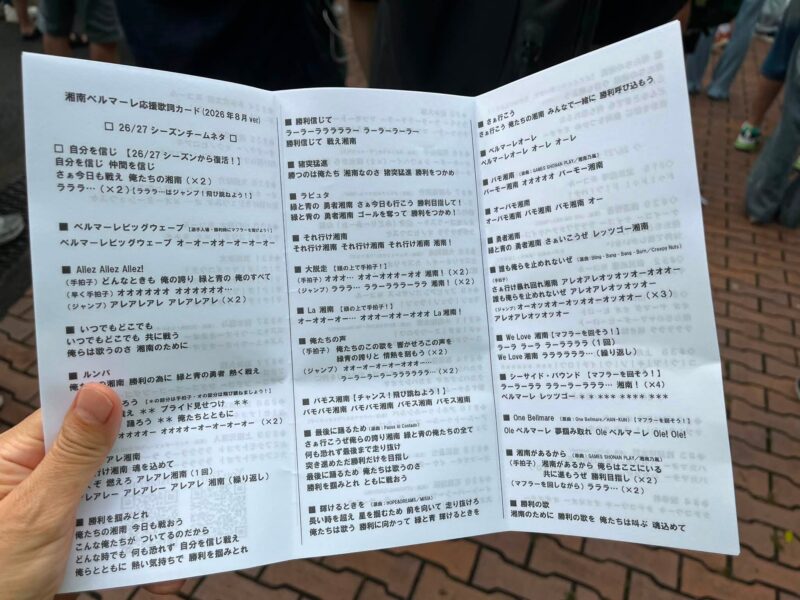 湘南ベルマーレ応援歌詞カード(2026年8月ver)
□ 26/27 シーズンチームネタ □
□ 自分を信じ 【26/27 シーズンから復活!】
自分を信じ 仲間を信じ
さぁ今日も戦え 俺たちの湘南(×2)
ラララ…(×2)【ララララはジャンプ!飛び跳ねよう!】
■ ベルマーレビッグウェーブ
ベルマーレビッグウェーブ オーオーオオーオーオーオー
■ Allez Allez Allez!
(手拍子)どんなときも 俺の誇り 緑と青の 俺のすべて
(早く手拍子)オオオオオオ オオオオオオ…
(ジャンプ)アレアレアレ アレアレアレ(×2)
■ いつでもどこでも
いつでもどこでも 共に戦う
俺らは歌うのさ 湘南のために
■ ルンバ
湘南 勝利の為に 緑と青の勇者 熱く戦え
ろう
戦え ** プライド見せつけ **
踊ろう ** 俺たちとともに
オオオオオオオー オオオオーオーオーオーオー(×2)
アレ湘南
け湘南 魂を込めて
そ 燃えろ アレアレ湘南(1回)
アレアレー アレアレー アレアレ 湘南(繰り返し)
■ 勝利を掴みとれ
俺たちの湘南 今日も戦おう
こんな俺たちが ついてるのだから
どんな時でも 何も恐れず 自分を信じ戦え
俺らとともに 熱い気持ちで 勝利を掴みとれ
■ 勝利信じて
ラーラーララララララー ラーラーラーラー
勝利信じて 戦え湘南
■ 猪突猛進
勝つのは俺たち 湘南なのさ 猪突猛進 勝利をつかめ
■ ラピュタ
緑と青の 勇者湘南 さぁ今日も行こう 勝利目指して!
緑と青の 勇者湘南 ゴールを奪って 勝利をつかめ!
■ それ行け湘南
それ行け湘南 それ行け湘南 それ行け湘南 湘南!
■ 大脱走 【頭の上で手拍子!】
(手拍子)オオオ… オオーオオオーオオ 湘南!(×2)
(ジャンプ)ラララ… ララーララララーララ 湘南!(×2)
■ La 湘南 【頭の上で手拍子!】
オーオオーオー… オオオーオオオーオオオ La 湘南!
■ 俺たちの声
(手拍子)俺たちのこの歌を 響かせろこの声を
緑青の誇りと 情熱を刻もう(×2)
(ジャンプ)オオオオオーオオーオーオー…
ラーラーラーラーラララララー(×2)
■ バモス湘南【チャンス!飛び跳ねよう!】
バモバモ湘南 バモバモ湘南 バモス湘南 バモス湘南
■ 最後に踊るため
さぁ行こうぜ俺らの誇り湘南 緑と青の俺たちの全て
何も恐れず最後まで走り抜け
突き進めただ勝利だけを目指し
最後に踊るため 俺たちは歌うのさ
勝利を掴みとれ ともに戦おう
■ 輝けるときを (原曲:HOPE&DREAMS/MISIA)
長い時を超え 風を掴むため 前を向いて 走り抜けろ
俺たちは歌う 勝利に向かって 緑と青 輝けるときを
■ さぁ行こう
さぁ行こう 俺たちの湘南 みんなで一緒に 勝利呼び込もう
■ ベルマーレオーレ
ベルマーレオーレ オーレ オーレ
■ バモ湘南 (原曲:GAMES SHONAN PLAY/湘南乃風)
バーモー湘南 オオオオオ バーモー湘南
■ オーバモ湘南
オーバモ湘南 バモ湘南 バモ湘南 オー
■ 勇者湘南
緑と青の 勇者湘南 さぁいこうぜ レッツゴー湘南
■ 誰も俺らを止めれないぜ (原曲:Bling‐Bang‐Bang‐Born/Creepy Nuts)
(手拍子)
さぁ行け暴れ回れ湘南 アレオアレオッオッオーオオオー
誰も俺らを止めれないぜ アレオアレオッオッオー
(ジャンプ)オーオッオッオーオッオーオッオッオー(×3)
アレオアレオッオッオー
■ We Love 湘南【マフラーを回そう!】
ラーラ ララ ラーララララ(1回)
We Love 湘南 ララララララ…(繰り返し)
■ シーサイド・バウンド 【マフラーを回そう!】
ラーラーララ ラーラーラーララ… 湘南!(×4)
ベルマーレ レッツゴー * * *** **** ***
■ One Bellmare (原曲:One Bellmare/HAN-KUN)【マフラーを回そう!】
Ole ベルマーレ 夢掴み取れ Ole ベルマーレ Ole! Ole!
■ 湘南があるから (原曲:GAMES SHONAN PLAY/湘南乃風)
(手拍子)湘南があるから 俺らはここにいる
共に進もうぜ 勝利目指し(×2)
(マフラーを回しながら)ラララ…(×2)
■ 勝利の歌
湘南のために 勝利の歌を 俺たちは叫ぶ 魂込めて